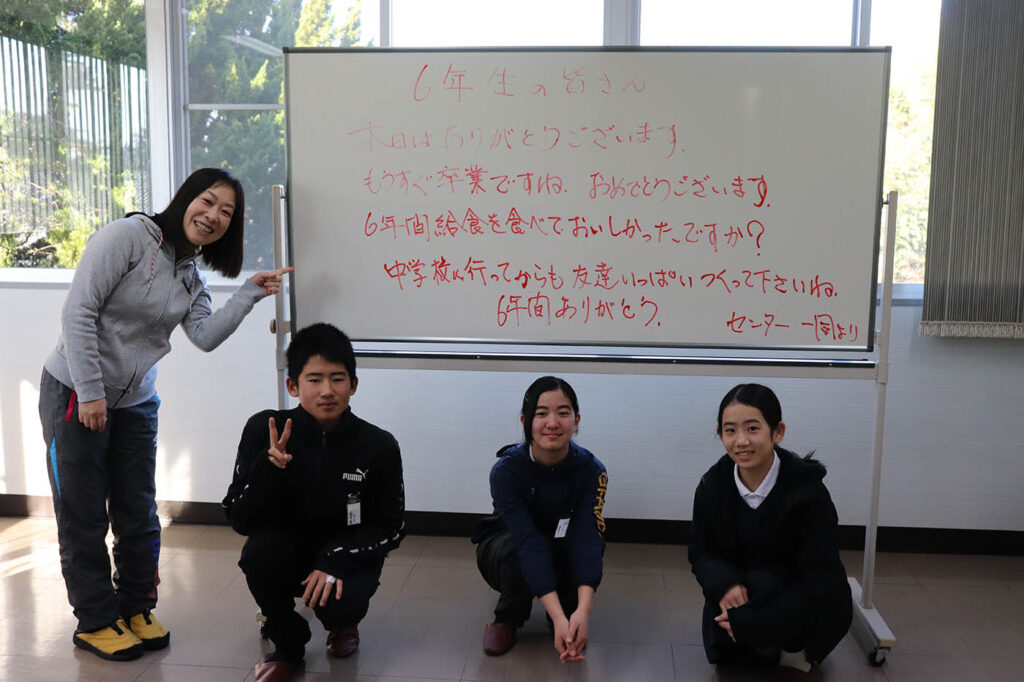 6年生の皆さん
本日はありがとうございます。
もうすぐ卒業ですね。おめでとうございます。
6年間給食を食べておいしかったですか?
中学校に行ってからも友達いっぱいつくって下さいね。
6年間ありがとう。
センター一同より
PUMA